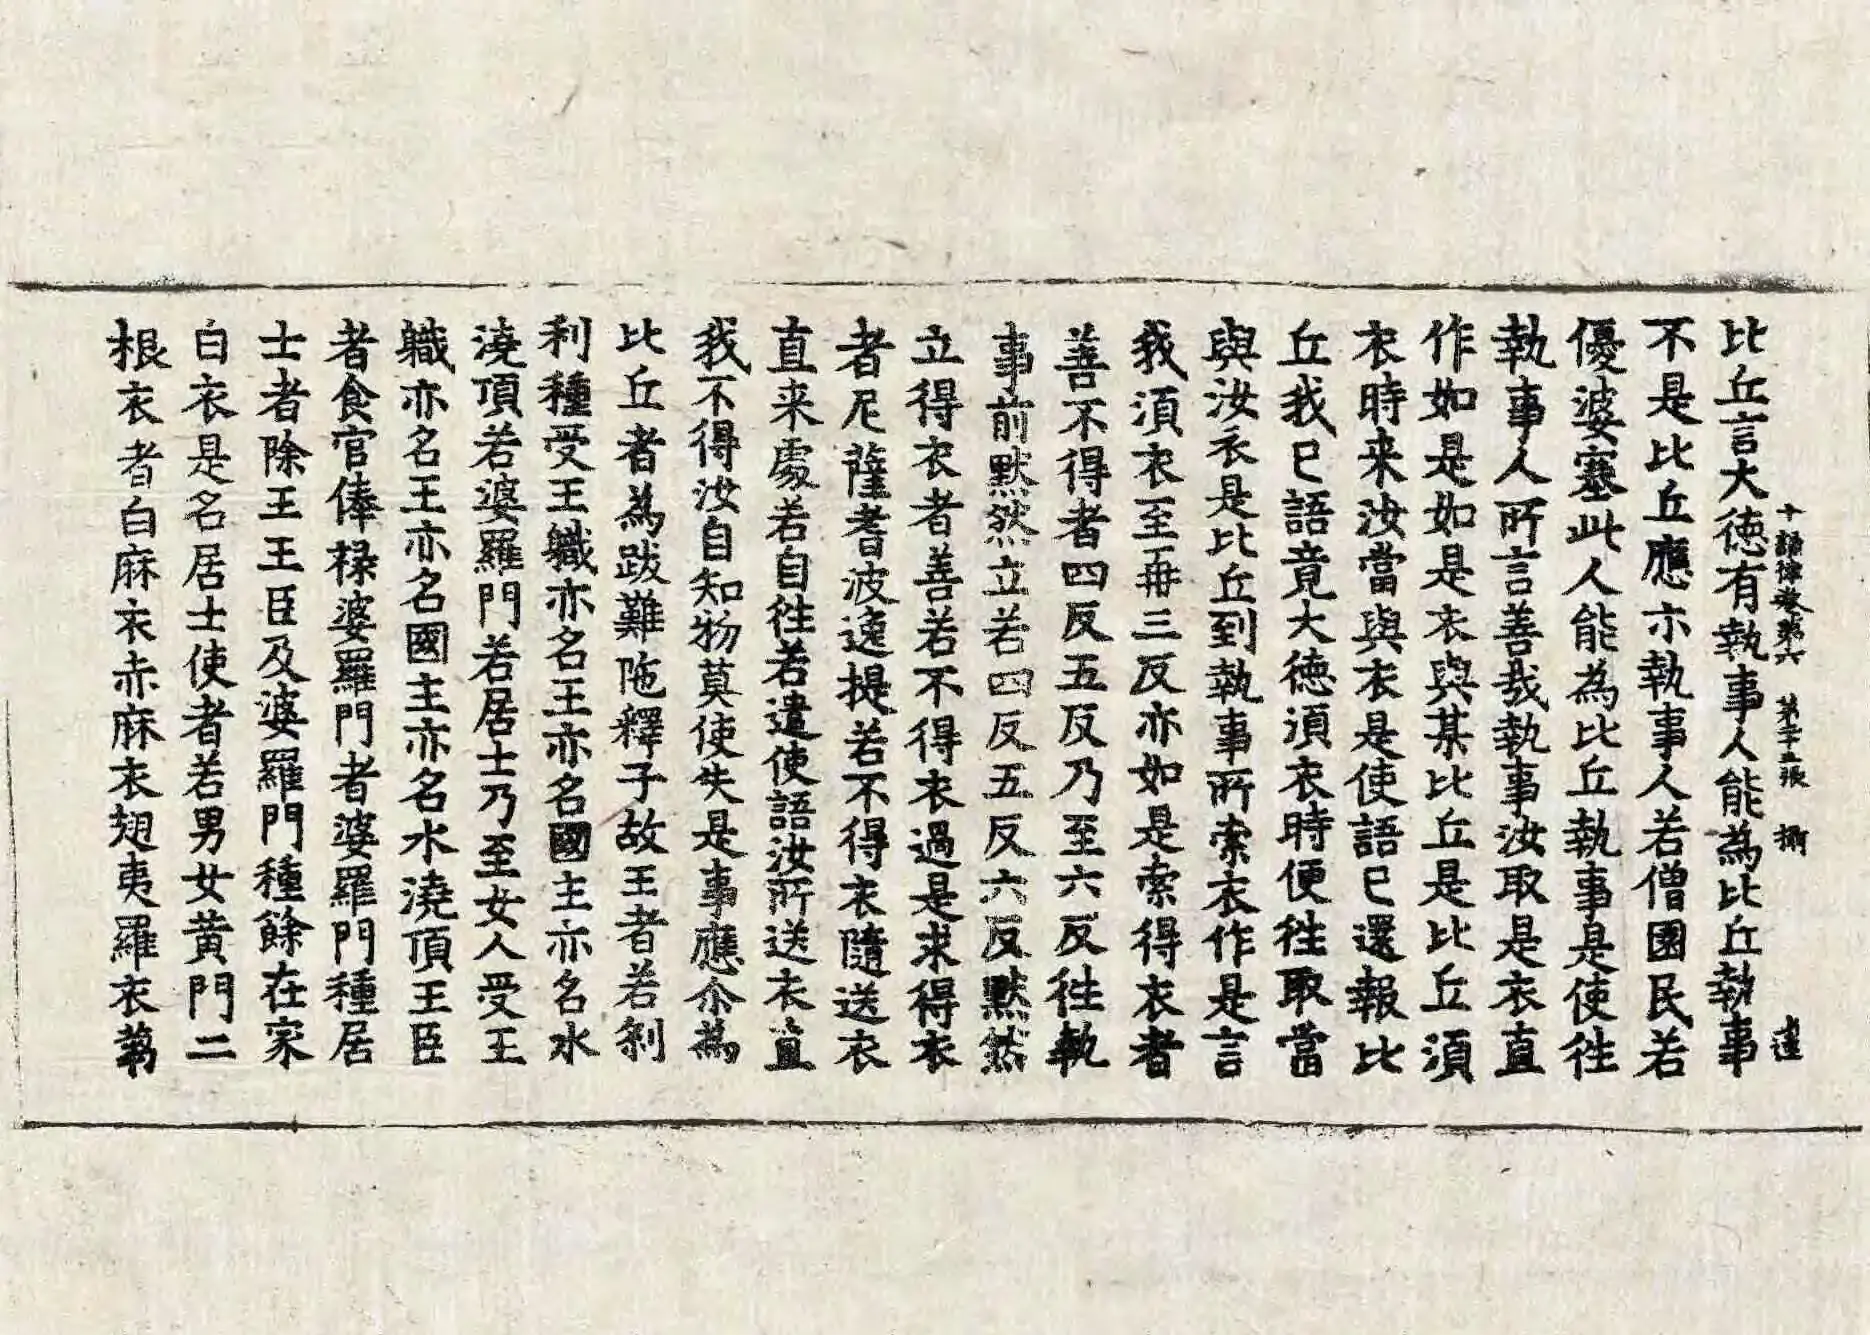 十誦律卷第六
比丘言大徳有執事人能為比丘執事
不是比丘應示執事人若僧園民若
優婆塞此人能為比丘執事是使徃
執事人所言善哉執事汝取是衣直
作如是如是衣與某比丘是比丘須
衣時来汝當與衣是使語已還報比
丘我已語竟大徳須衣時便徃取當
與汝衣是比丘到執事所索衣作是言
我須衣至再三反亦如是索得衣者
善不得者四反五反乃至六反徃執
事前默然立若四反五反六反默然
立得衣者善若不得衣過是求得衣
者尼薩耆波逸提若不得衣隨送衣
直来處若自徃若遣使語汝所送衣直
我不得汝自知物莫使失是事應尒為
比丘者為跋難陁釋子故王者若刹
利種受王軄亦名王亦名國主亦名水
澆頂若婆羅門若居士乃至女人受王
軄亦名王亦名國主亦名水澆頂王臣
者食官俸禄婆羅門者婆羅門種居
士者除王王臣及婆羅門種餘在家
白衣是名居士使者若男女黄門二
根衣者白麻衣赤麻衣翅夷羅衣芻